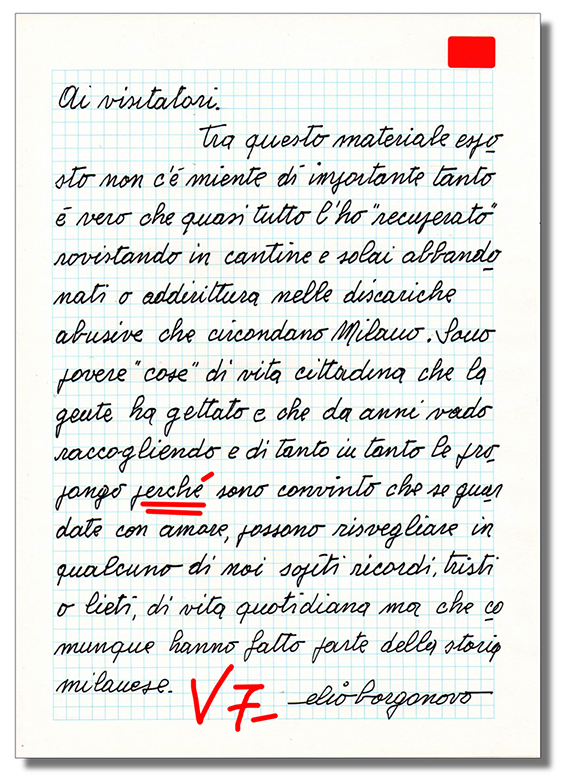 Ai visitatori.
Tra questo materiale espo
sto non c'é niente di importante tanto
é vero che quasi tutto l'ho "recuperato"
rovistando in cantine e solai abbando
nati o addirittura nelle discariche
abusive che circondano Milano. Sono
povere "cose" di vita cittadina che la
gente ha gettato e che da anni vado
raccogliendo e di tanto in tanto le pro
pongo perché sono convinto che se guar
date con amore, possono risvegliare in
qualcuno di noi sopiti ricordi, tristi
o lieti, di vita quotidiana ma che co
munque hanno fatto parte della storia
milanese. V 7-
elio borgonovo